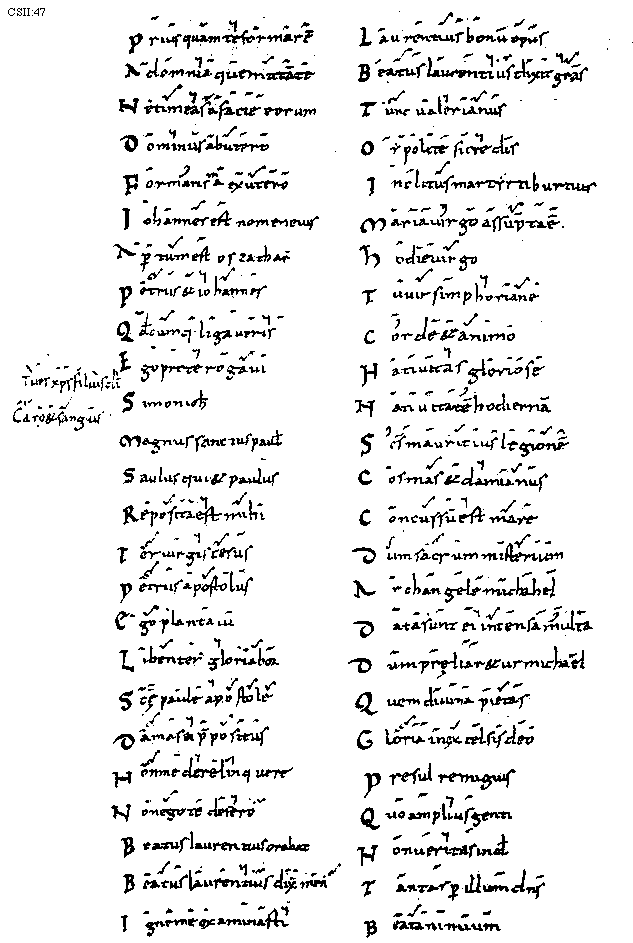 CSII:47
Priusquam te formarē
Ad omnia que mittā te
Ne timeas a facie eorum
Dominus ab utero
Formans mē ex utero
Iohannes est nomen eius
Apertum est os zachar
Petrus & iohannes
Qđcumq; ligaveris
Ego pro te rogavi
Tu es xp̄s filius dī
Caro & sanguis
Simon ioħ
Magnus sanctus paul
Saulus qui & paulus
Reposita est mihi
Ter virgis cesus
Petrus apostolus
Ego plantavi
Libenter gloriabor
Sc̄e paule apostole
Damasci p̄positus
Non me derelinquere
Non ego te desero
Beatus laurentius orabat
Beatus laurentius dix̄
Igne me examinasti
Laurentius bonū opus
Beatus laurentius dixit
Tunc valerianus
O ypolite si credis
Inclitus martyr tiburtius
Maria virgo assūpta ē.
Hodie virgo
Tu vir simphoriane
Corde & animo
Nativitas gloriose
Nativitatē hodiernā
Sc̄s mauritius legionē
Cosmas & damianus
Concussū est mare
Dum sacrum misterium
Archangele michahel
Data sunt ei incensa multa
Dum preliar&ur michael
Quem divina pietas
Gloria in excelsis deo
Presul remigius
Quo amplius genti
Non veritas
Tantas p illum dn̄s
Beata nimium